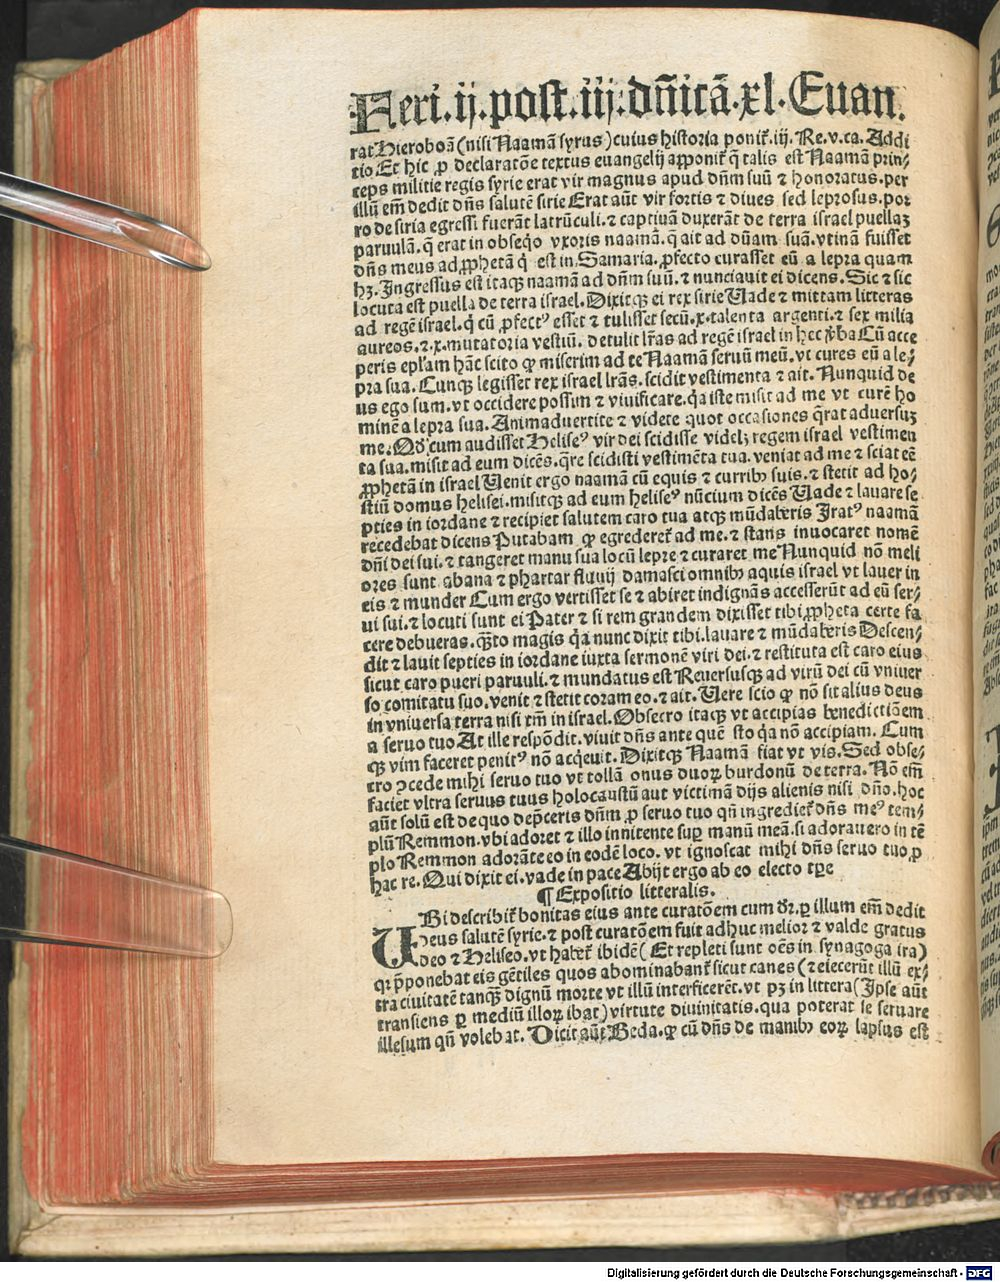 Feri.ij.post.iij.dñicã.xl.Euan.
rat Hieroboã (nisi Naamã syrus) cuius historia ponit̃.iij.Re.v.ca.Addi
tio Et hic ꝓ declaratõe textus euangelij apponit̃ q̃ talis est Naamã prin⸗
ceps militie regis syrie erat vir magnus apud dñm suũ ⁊ honoratus.per
illũ em̃ dedit dñs salutẽ sirie Erat aũt vir fortis ⁊ diues sed leprosus.por
ro de siria egressi fuerãt latrũculi.⁊ captiuã duxerãt de terra israel puellaꝫ
paruulã.q̃ erat in obseq̃o vxoris naamã.q̃ ait ad dñam suã.vtinã fuisset
dñs meus ad ꝓphetã q̃ est in Samaria.ꝓfecto curasset eũ a lepra quam
hꝫ.Ingressus est itaqꝫ naamã ad dñm suũ.⁊ nunciauit ei dicens.Sic ⁊ sic
locuta est puella de terra israel.Dixitqꝫ ei rex sirie Uade ⁊ mittam litteras
ad regẽ israel.q̃ cũ ꝓfectꝰ esset ⁊ tulisset secũ.x.talenta argenti.⁊ sex milia
aureos.⁊.x.mutatoria vestiũ.detulit lr̃as ad regẽ israel in hec ṽba Cũ acce
peris epl̃am hãc scito ꝙ miserim ad te Naamã seruũ meũ.vt cures eũ a le⸗
pra sua.Cunqꝫ legisset rex israel lr̃as.scidit vestimenta ⁊ ait.Nunquid de
us ego sum.vt occidere possum ⁊ viuificare.q̃a iste misit ad me vt curẽ ho
minẽ a lepra sua.Animaduertite ⁊ videte quot occasiones q̃rat aduersuꝫ
me.Qd̃ cum audisset Heliseꝰ vir dei scidisse videlꝫ regem israel vestimen
ta sua.misit ad eum dicẽs.q̃re scidisti vestimẽta tua.veniat ad me ⁊ sciat eẽ
ꝓphetã in israel Uenit ergo naamã cũ equis ⁊ curribꝫ suis.⁊ stetit ad ho⸗
stiũ domus helisei.misitqꝫ ad eum heliseꝰ nũcium dicẽs Uade ⁊ lauare se
pties in iordane ⁊ recipiet salutem caro tua atqꝫ mũdaberis Iratꝰ naamã
recedebat dicens Putabam ꝙ egrederet̃ ad me.⁊ stans inuocaret nomẽ
dñi dei sui.⁊ tangeret manu sua locũ lepre ⁊ curaret me Nunquid nõ meli
ores sunt abana ⁊ phartar fluuij damasci omnibꝫ aquis israel vt lauer in
eis ⁊ munder Cum ergo vertisset se ⁊ abiret indignãs accesserũt ad eũ ser⸗
ui sui.⁊ locuti sunt ei Pater ⁊ si rem grandem dixisset tibi ꝓpheta certe fa
cere debueras.q̃̃to magis q̃a nunc dixit tibi.lauare ⁊ mũdaberis Descen⸗
dit ⁊ lauit septies in iordane iuxta sermonẽ viri dei.⁊ restituta est caro eius
sicut caro pueri paruuli.⁊ mundatus est Reuersusqꝫ ad virũ dei cũ vniuer
so comitatu suo.venit ⁊ stetit coram eo.⁊ ait.Uere scio ꝙ nõ sit alius deus
in vniuersa terra nisi tm̃ in israel.Obsecro itaqꝫ vt accipias benedictiõem
a seruo tuo At ille respõdit.viuit dñs ante quẽ sto q̃a nõ accipiam.Cum
qꝫ vim faceret penitꝰ nõ acq̃euit.Dixitqꝫ Naamã fiat vt vis.Sed obse⸗
cro ↄcede mihi seruo tuo vt tollã onus duoꝝ burdonũ de terra.Nõ em̃
faciet vltra seruus tuus holocaustũ aut victimã dijs alienis nisi dño.hoc
aũt solũ est de quo dep̃ceris dñm ꝓ seruo tuo qñ ingrediet̃ dñs meꝰ tem⸗
plũ Remmon.vbi adoret ⁊ illo innitente suꝑ manũ meã.si adorauero in tẽ
plo Remmon adorãte eo in eodẽ loco.vt ignoscat mihi dñs seruo tuo ꝓ
hac re.Qui dixit ei.vade in pace Abijt ergo ab eo electo tꝑe
¶ Expositio litteralis.
UBi describit̃ bonitas eius ante curatõem cum dr̃.ꝑ illum em̃ dedit
deus salutẽ syrie.⁊ post curatõem fuit adhuc melior ⁊ valde gratus
deo ⁊ Heliseo.vt habet̃ ibidẽ (Et repleti sunt oẽs in synagoga ira)
qꝛ p̃ponebat eis gẽtiles quos abominabant̃ sicut canes (⁊ eiecerũt illũ ex⸗
tra ciuitatẽ tanqꝫ dignũ morte vt illũ interficerẽt.vt pꝫ in littera (Ipse aũt
transiens ꝑ mediũ illoꝝ ibat) virtute diuinitatis.qua poterat se seruare
illesum qñ volebat.Dicit aũt Beda.ꝙ cũ dñs de manibꝫ eoꝝ lapsus est
Digitalisierung gefördert durch die Deutsche Forschungsgemeinschaft - DFG